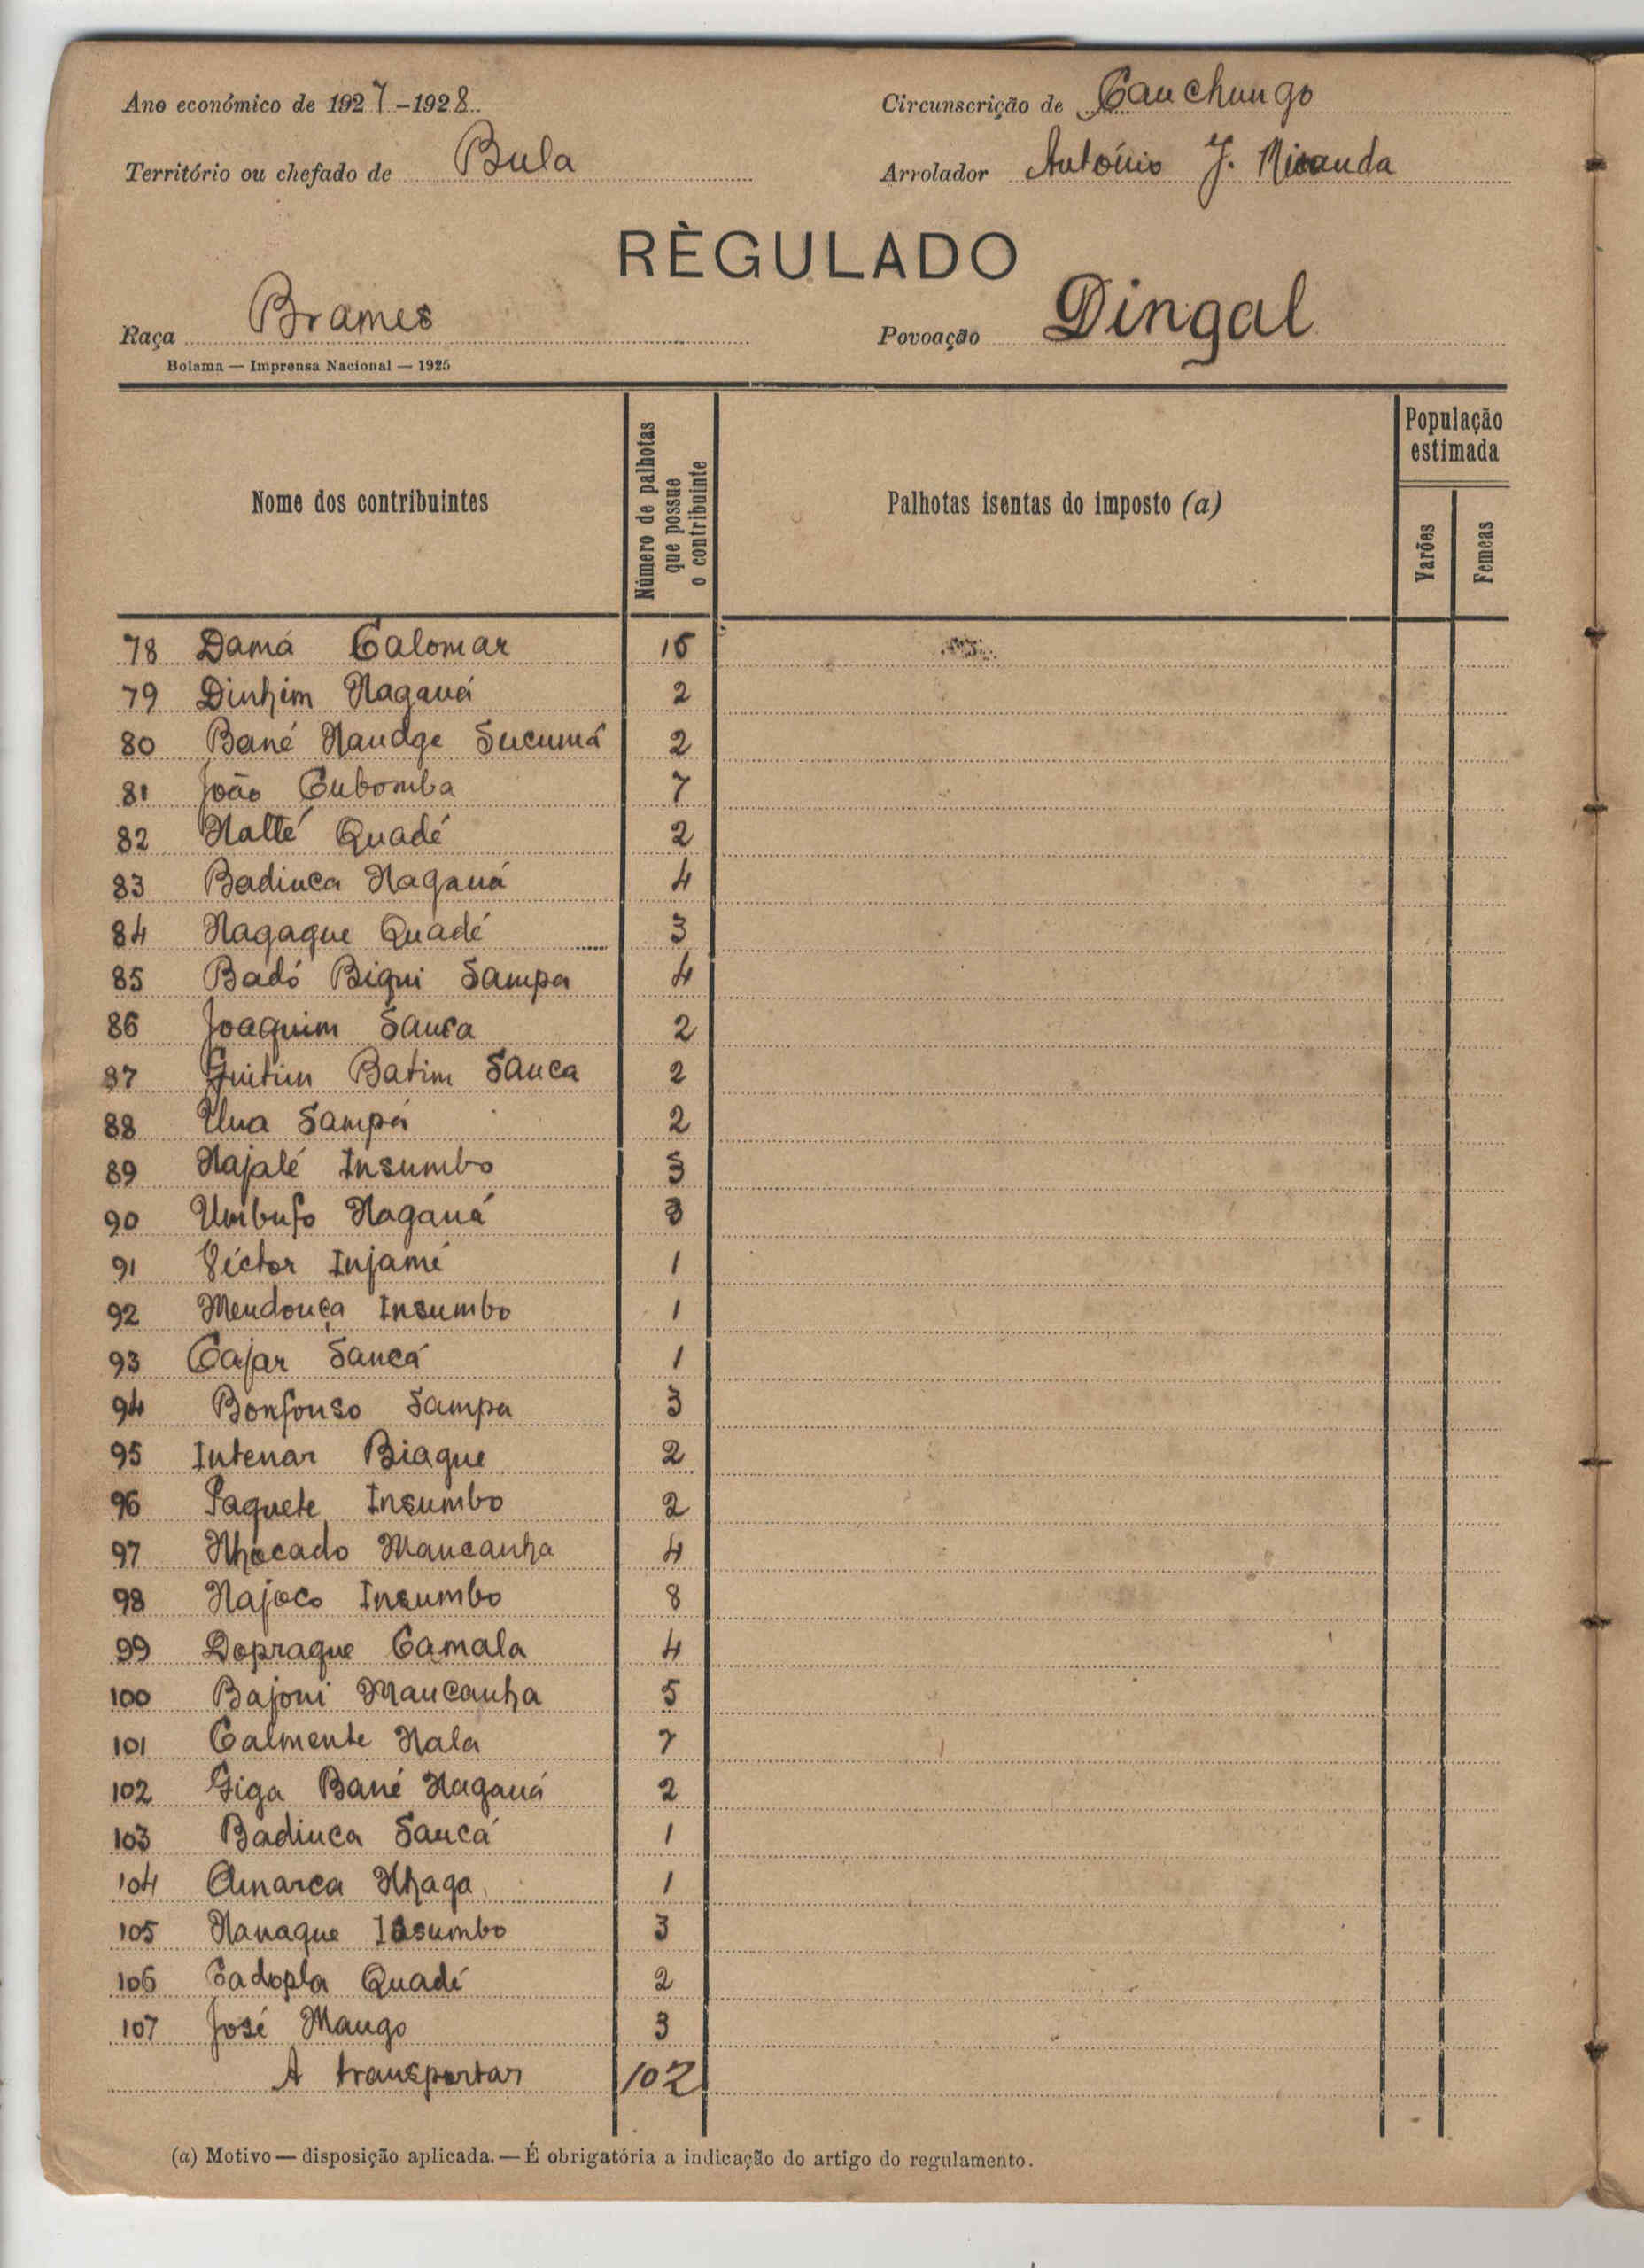 Ano económico de 1927-1928
Circunscrição de Canchungo
Território ou chefado de Bula
Arrolador António J. Miranda
RÈGULADO
Raça Brames
Povoação Dingal
Bolama — Imprensa Nacional — 1925
Nome dos contribuintes
Número de palhotas que possue o contribuinte
Palhotas isentas do imposto (a)
População estimada
Varões
Femeas
78 Damá Calomar
79 Dinhim Naganá 2
80 Bané Nandge Sucumá 2
81 João Cubomba 7
82 Nalté Quadé 2
83 Badinca Naganá 4
84 Nagaque Quadé 3
85 Badó Biqui Sampa 4
86 Joaquim Sanca 2
87 Guitim Batim Sanca 2
88 Una Sampa 2
89 Najalé Insumbo 3
90 Umbufo Naganá 3
91 Víctor Injamé 1
92 Mendonça Insumbo 1
93 Cajar Sancá 1
94 Bonfonso Sampa 3
95 Intenar Biague 2
96 Paquete Insumbo 2
97 Nhocado Mancanha 4
98 Najoco Insumbo 8
99 Dopraque Camala 4
100 Bajoni Mancanha 5
101 Calmente Nala 7
102 Giga Bané Naganá 2
103 Badinca Sancá 1
104 Amarca Nhaga 1
105 Nanaque Insumbo 3
106 Cadopla Quadé 2
107 José Mango 3
A transportar 102
(a) Motivo — disposição aplicada. — É obrigatória a indicação do artigo do regulamento.